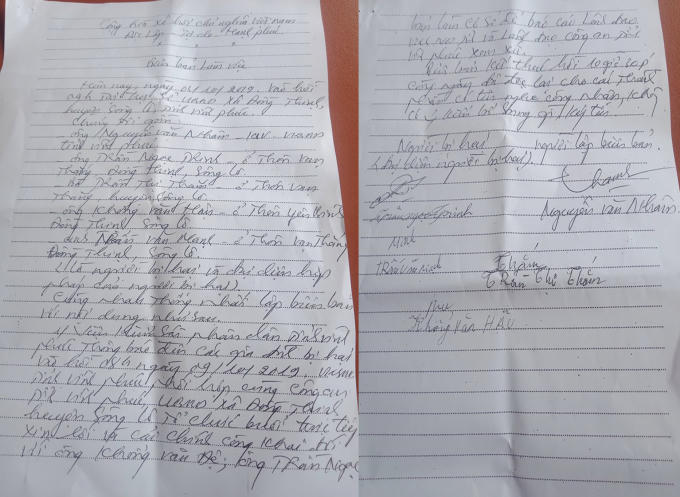 Cộng hòa xã hội chủ nghĩa việt nam
Độc lập - Tự do - Hạnh phúc
Biên bản làm việc
Hôm nay, ngày 04/10/2019. Vào hồi
tại UBND xã Đồng Thịnh,
huyện Sông Lô, tỉnh vĩnh phúc.
Chúng tôi gồm:
- ông Nguyễn văn Nhâm - VKSND
tỉnh vĩnh phúc.
- ông Trần Ngọc Trinh - ở Thôn vạn
Thắng, Đồng Thịnh, Sông Lô.
- bà Trần Thị Thắm - ở Thôn vạn
Thắng, huyện Sông Lô.
- ông Khổng văn Hậu - ở Thôn yên
Đồng Thịnh, Sông Lô.
- anh văn - ở Thôn vạn Thắng
Đồng Thịnh, Sông Lô.
(là người bị hại và đại diện hợp
pháp cho người bị hại).
Cùng nhau thống nhất lập biên bản
với nội dung như sau:
Viện kiểm sát nhân dân tỉnh vĩnh
phúc thông báo đến các gia đình bị hại
vào hồi ngày 09/10/2019. VKSND
tỉnh vĩnh phúc phối hợp cùng công an
tỉnh vĩnh phúc, UBND xã Đồng Thịnh
huyện Sông Lô tổ chức buổi trực tiếp
xin lỗi và cải chính công khai đối
với ông Khổng văn Đệ, ông Trần Ngọc
làm cơ sở để báo cáo Lãnh đạo
và Lãnh đạo công an tỉnh
vĩnh phúc xem xét.
Biên bản kết thúc hồi cập
cùng ngày, đã đọc lại cho các thành
phần có tên nghe công nhận, không
có ý kiến bổ sung gì ký tên.
Người bị hại người lập biên bản.
(Đại diện người bị hại).
Trần Ngọc Trinh
Nguyễn văn Nhâm
Trần Văn
Thắm
Trần Thị Thắm
Khổng văn HẬU